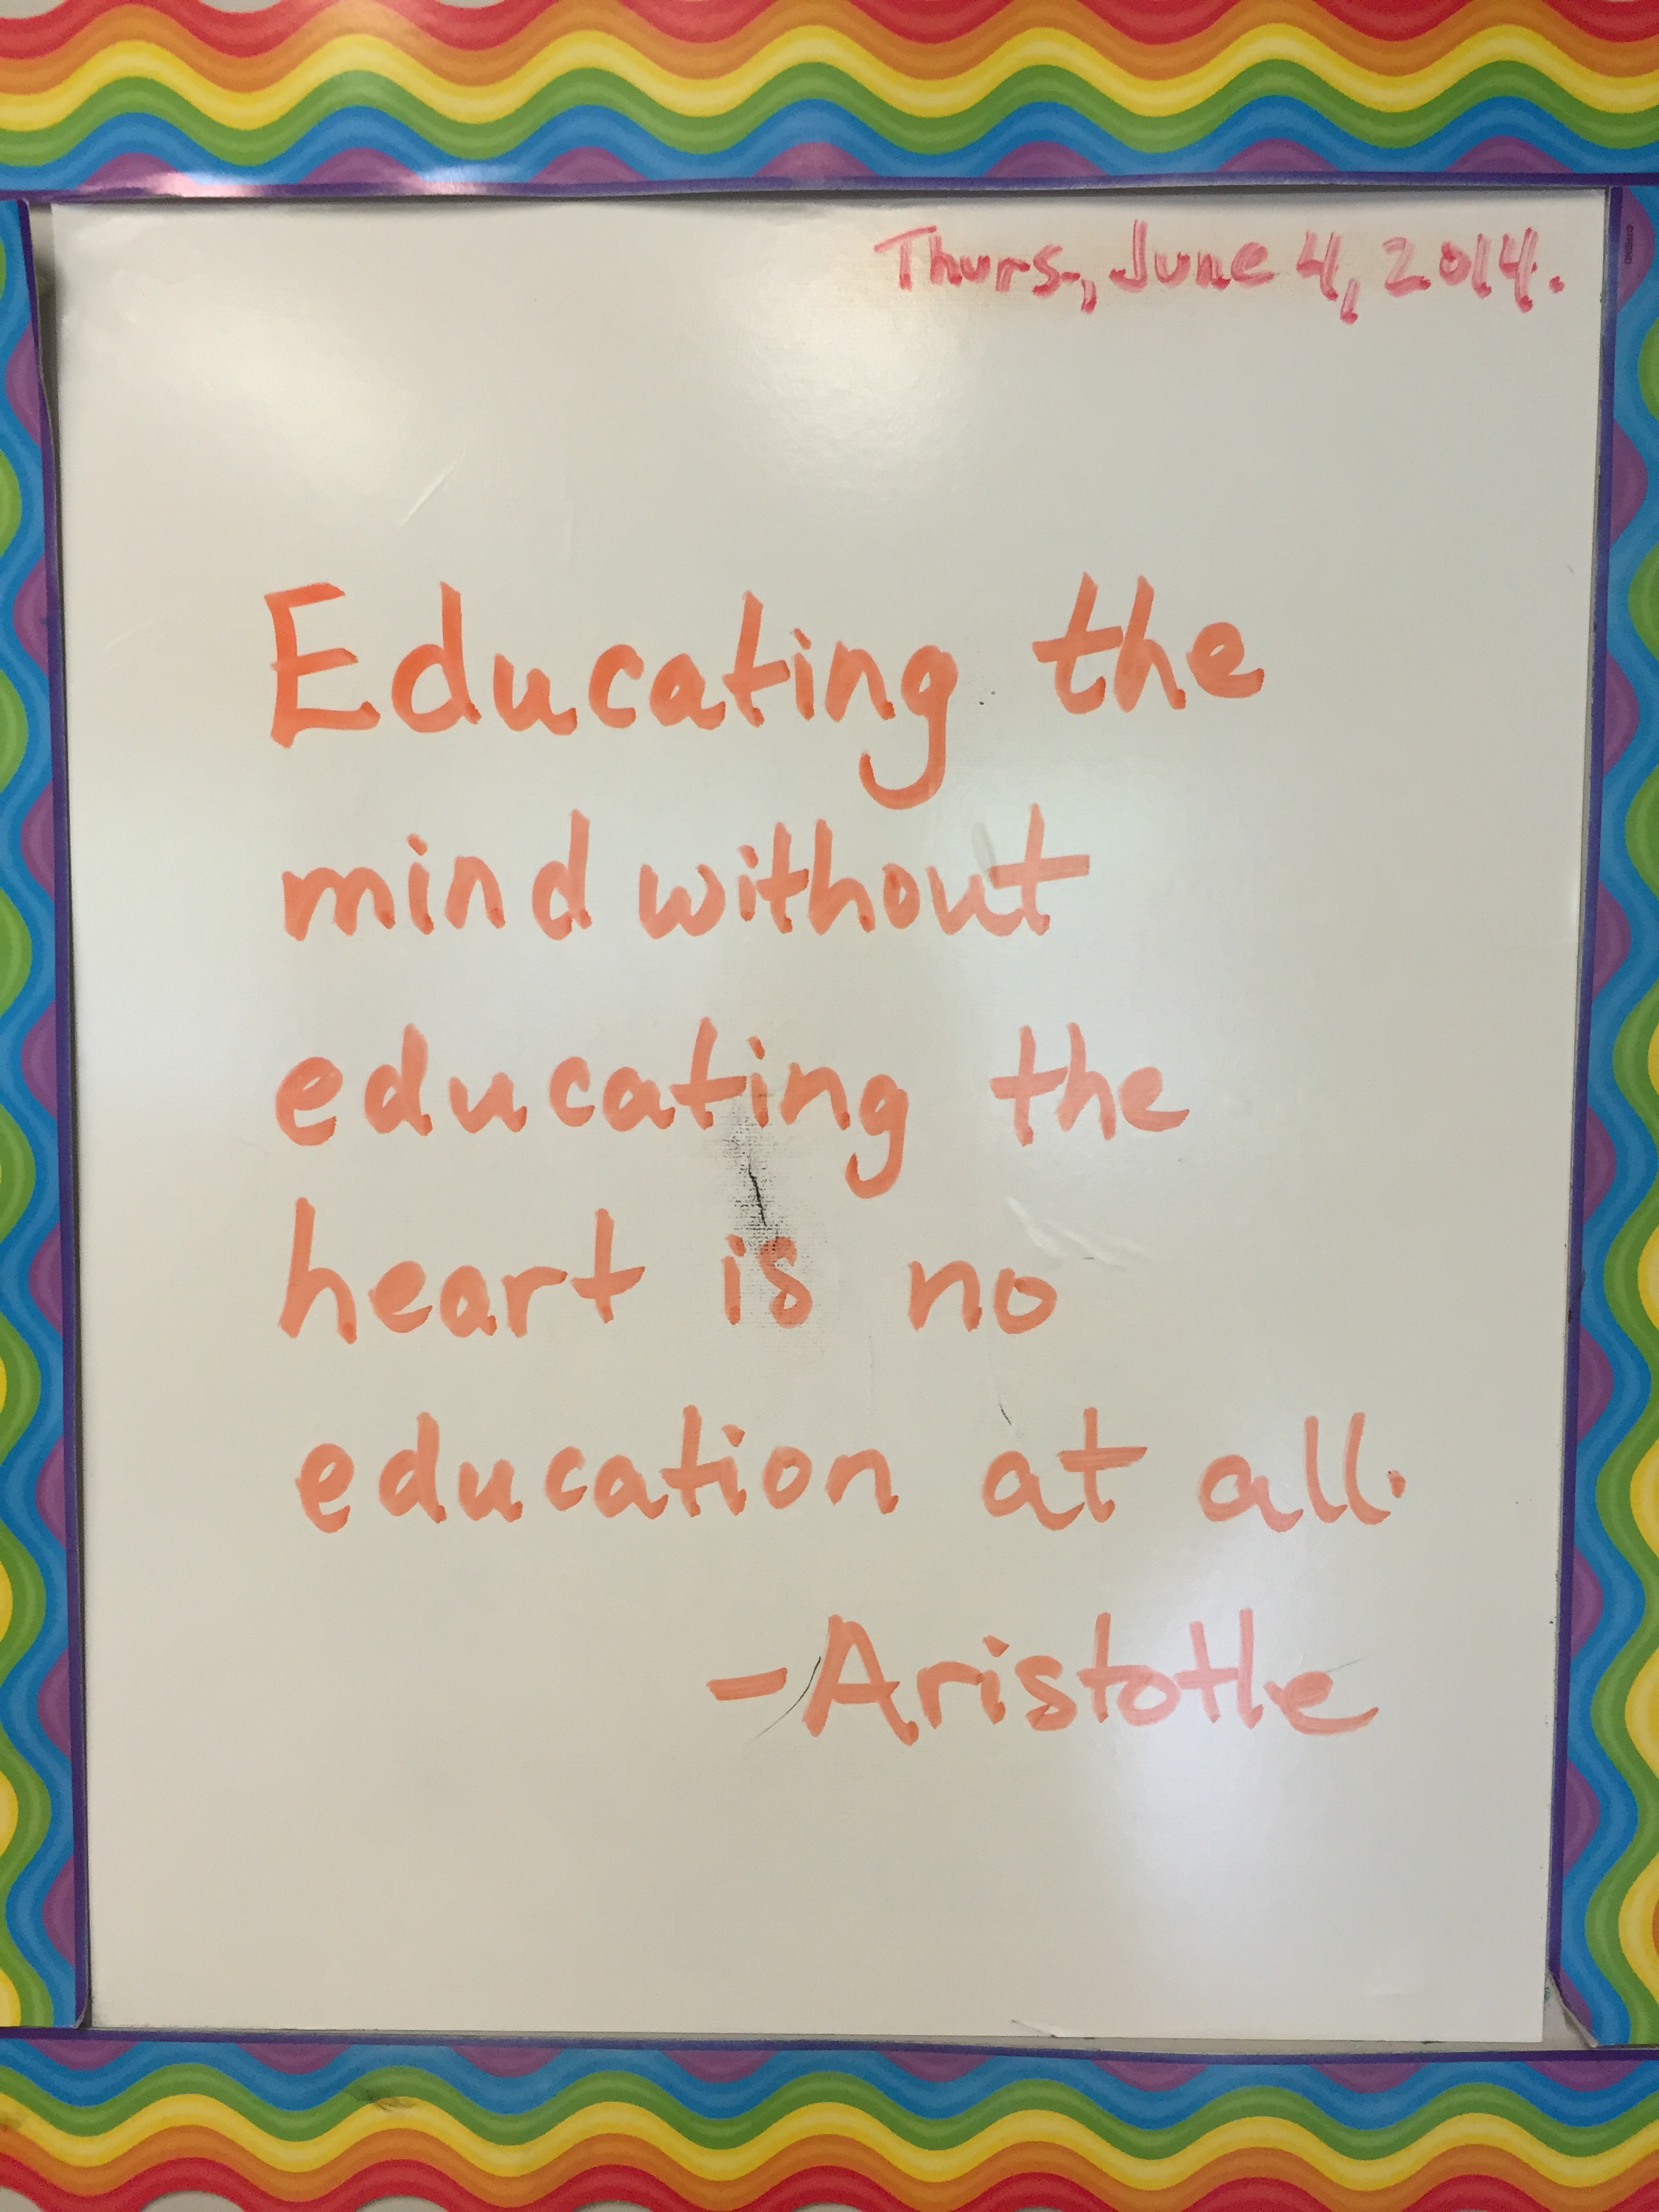 Thurs., June 4, 2014.
Educating the
mind without
educating the
heart is no
education at all.
-Aristotle